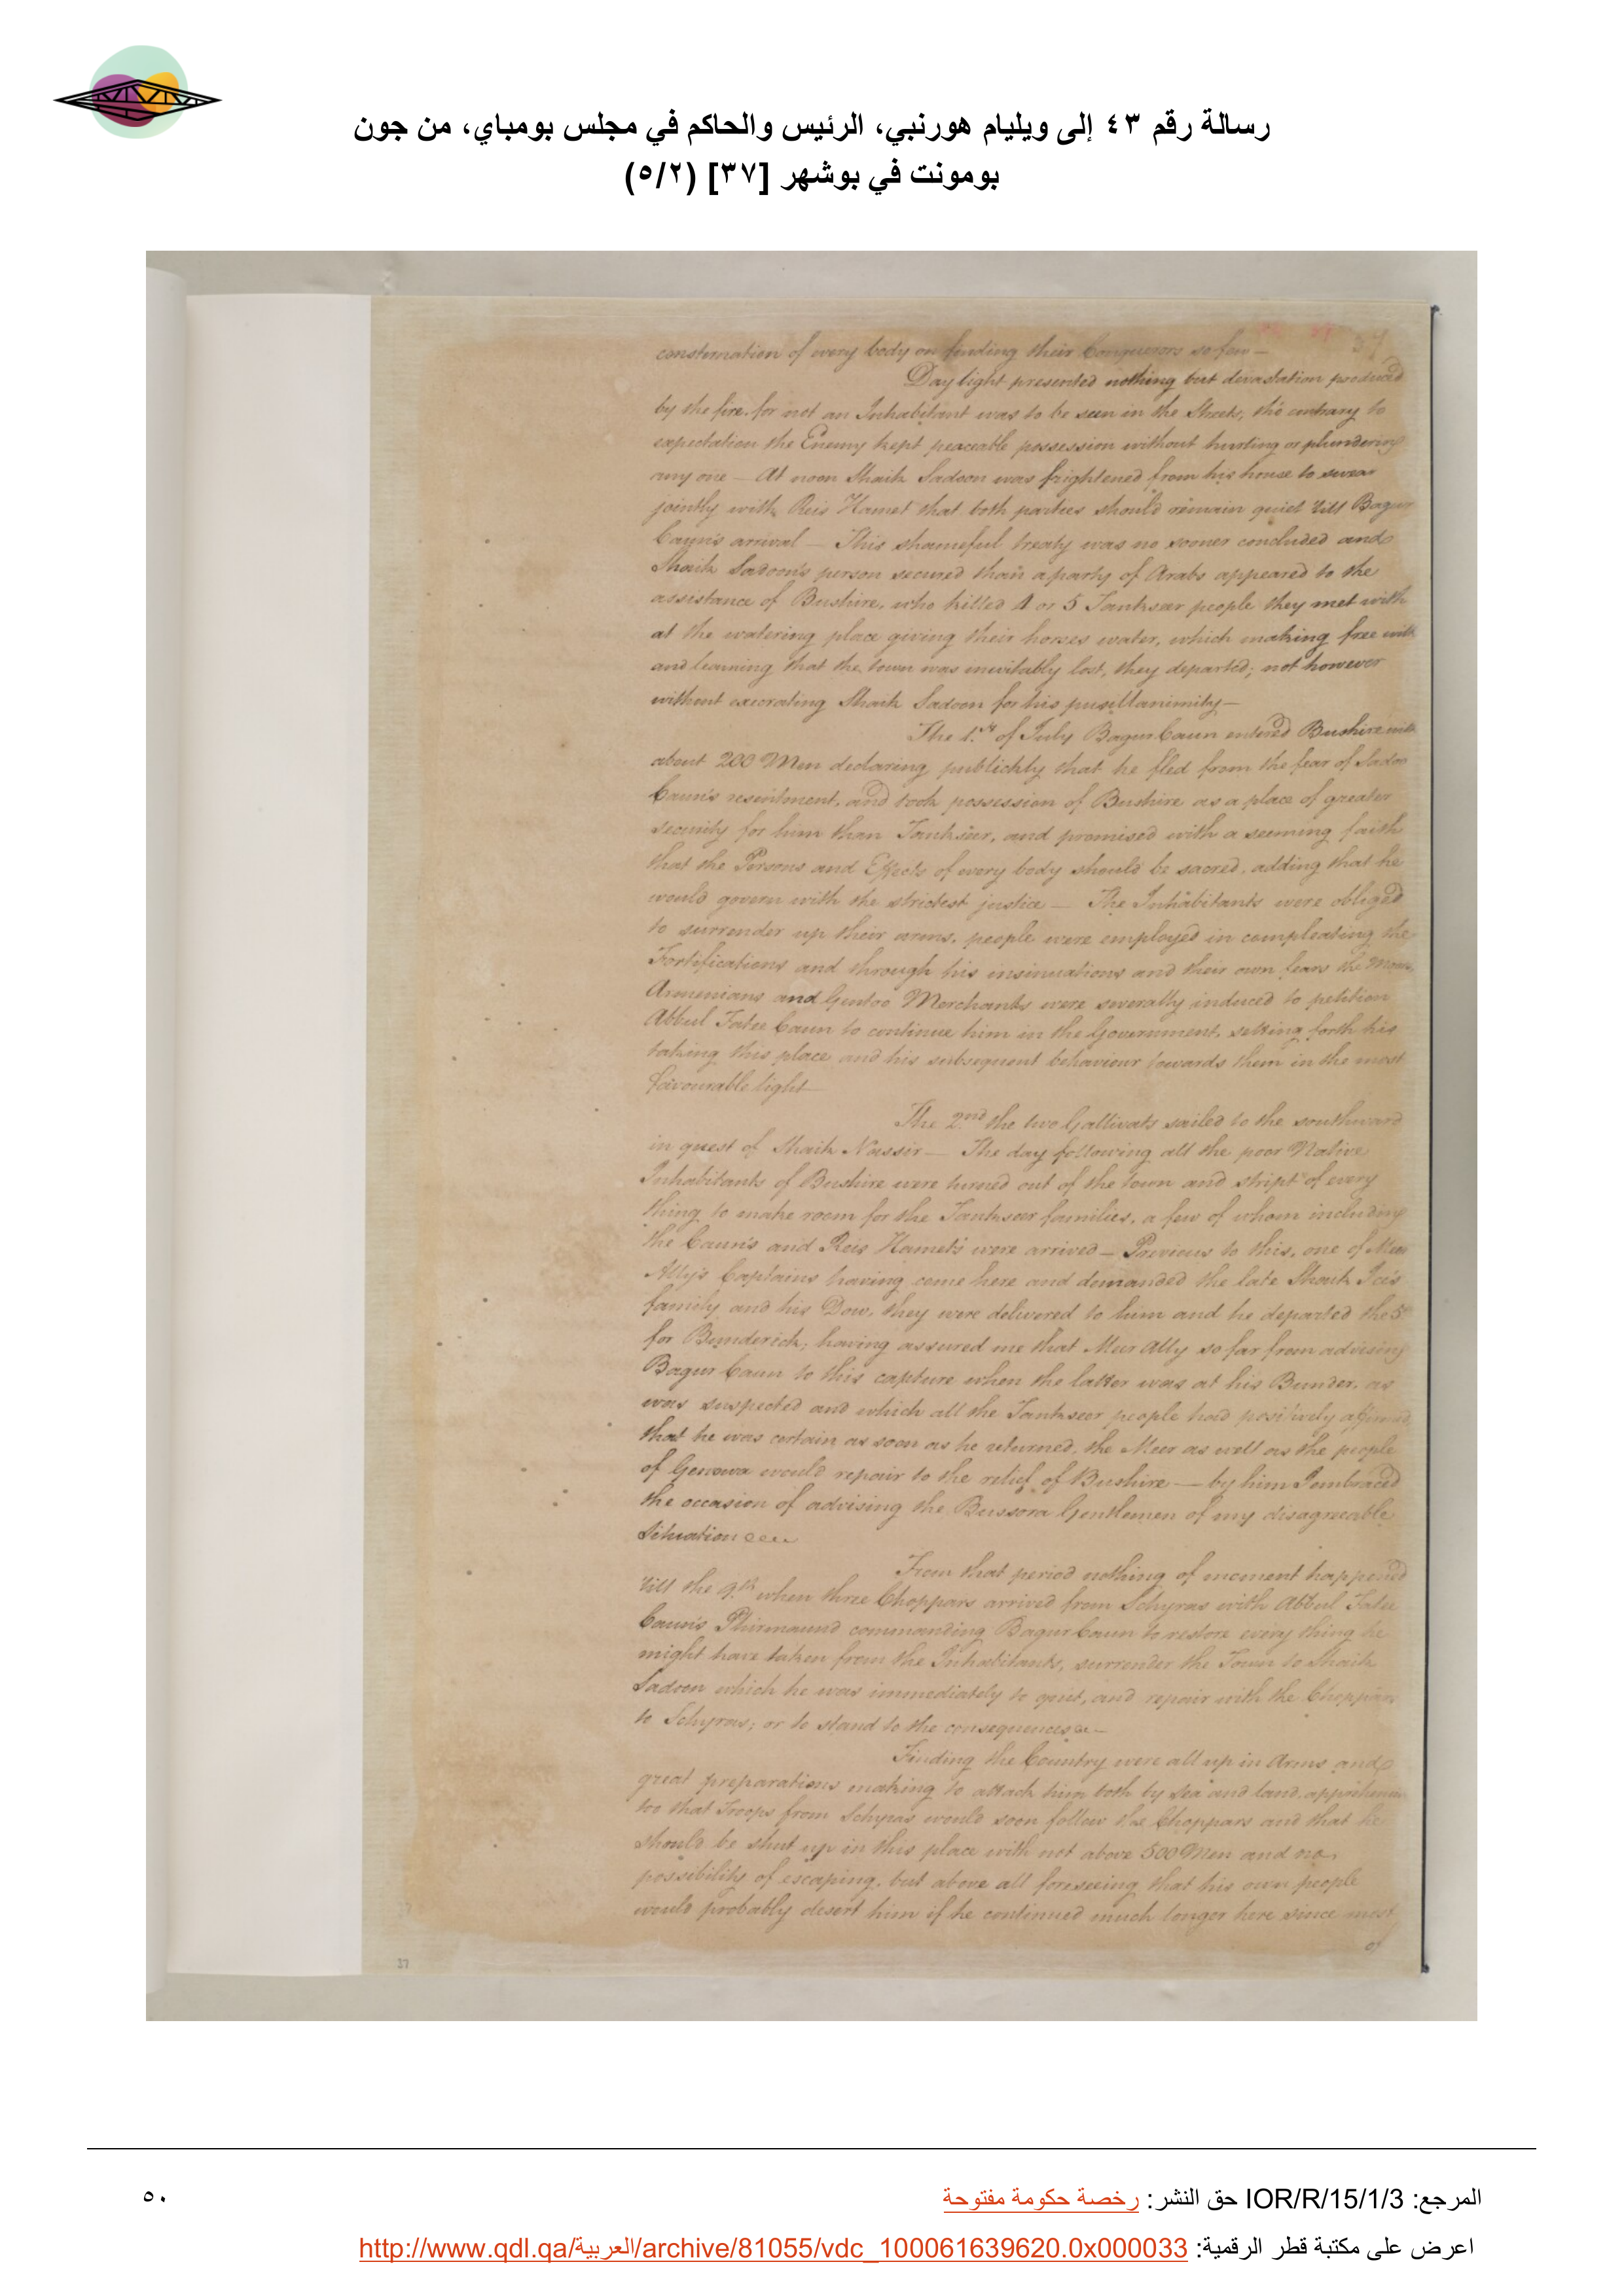 رسالة رقم ٤٣ إلى ويليام هورنبي، الرئيس والحاكم في مجلس بومباي، من جون
بومونت في بوشهر [٣٧] (٥/٢)
consternation of every body on finding their Conquerors so few —
Day light presented nothing but devastation produced
by the fire, for not an Inhabitant was to be seen in the Streets, tho' contrary to
expectation the Enemy kept peaceable possession without hurting or plundering
any one — At noon Shaik Sadoon was frightened from his house to swear
jointly with Reis Hamet that both parties should remain quiet till Bagur
Caun's arrival — This shameful treaty was no sooner concluded and
Shaik Sadoon's person secured than a party of Arabs appeared to the
assistance of Bushire, who killed 4 or 5 Tankseer people they met with
at the watering place giving their horses water, which making free with
and learning that the town was inevitably lost, they departed; not however
without execrating Shaik Sadoon for his pusillanimity —
The 1.st of July Bagur Caun entered Bushire with
about 200 Men declaring publickly that he fled from the fear of Sadoo
Caun's resentment, and took possession of Bushire as a place of greater
security for him than Tankseer, and promised with a seeming faith
that the Persons and Effects of every body should be sacred, adding that he
would govern with the strictest justice — The Inhabitants were obliged
to surrender up their arms, people were employed in compleating the
Fortifications and through his insinuations and their own fears the
Armenians and Gentoo Merchants were severally induced to petition
Abbul Fatee Caun to continue him in the Government, setting forth his
taking this place and his subsequent behaviour towards them in the most
favourable light —
The 2.nd the two Gallivats sailed to the southward
in quest of Shaik Nassir — The day following all the poor Native
Inhabitants of Bushire were turned out of the town and stript of every
thing to make room for the Tankseer families, a few of whom including
the Caun's and Reis Hamet's were arrived — Previous to this, one of Meer
Ally's Captains having come here and demanded the late Shaik Ice's
family and his Dow, they were delivered to him and he departed the 5
for Bunderick, having assured me that Meer Ally so far from advising
Bagur Caun to this capture when the latter was at his Bunder, as
was suspected and which all the Tankseer people had positively affirmed
that he was certain as soon as he returned, the Meer as well as the people
of Genowa would repair to the relief of Bushire — by him I embraced
the occasion of advising the Bussora Gentlemen of my disagreeable
Situation
From that period nothing of moment happened
till the 9.th when three Choppars arrived from Schyras with Abbul Fatee
Caun's Phirmaund commanding Bagur Caun to restore every thing he
might have taken from the Inhabitants, surrender the Town to Shaik
Sadoon which he was immediately to quit, and repair with the Choppars
to Schyras; or to stand to the consequences —
Finding the Country were all up in Arms and
great preparations making to attack him both by Sea and land, apprehensive
too that Troops from Schyras would soon follow the Choppars and that he
should be shut up in this place with not above 500 Men and no
possibility of escaping, but above all foreseeing that his own people
would probably desert him if he continued much longer here since most
of
37
المرجع: IOR/R/15/1/3 حق النشر: رخصة حكومة مفتوحة
٥٠
اعرض على مكتبة قطر الرقمية: http://www.qdl.qa/العربية/archive/81055/vdc_100061639620.0x000033